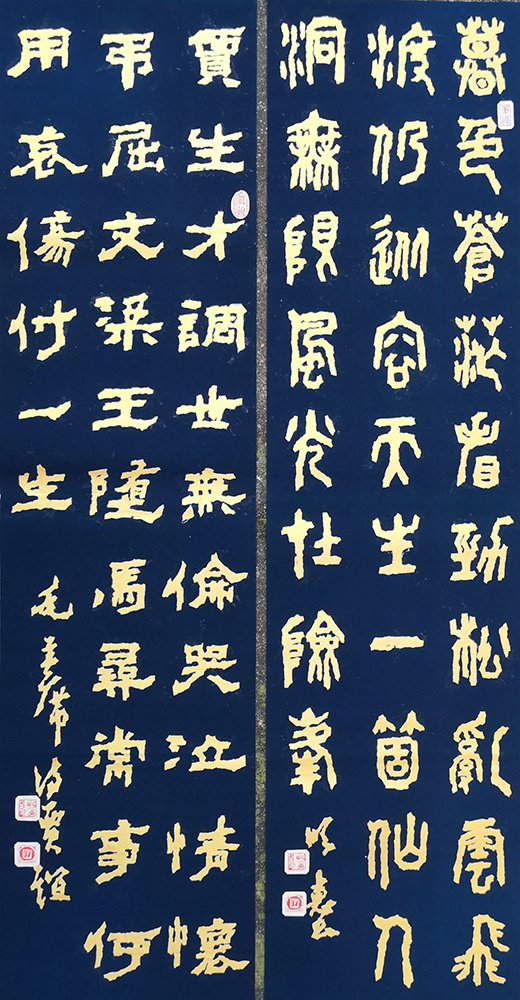 暮色蒼茫看勁松亂雲飛
渡仍從容天生一箇仙人
洞無限風光在險峯
賈生才調世無倫哭泣情懷
弔屈文梁王墮馬尋常事何
用哀傷付一生
毛主席詩賈誼